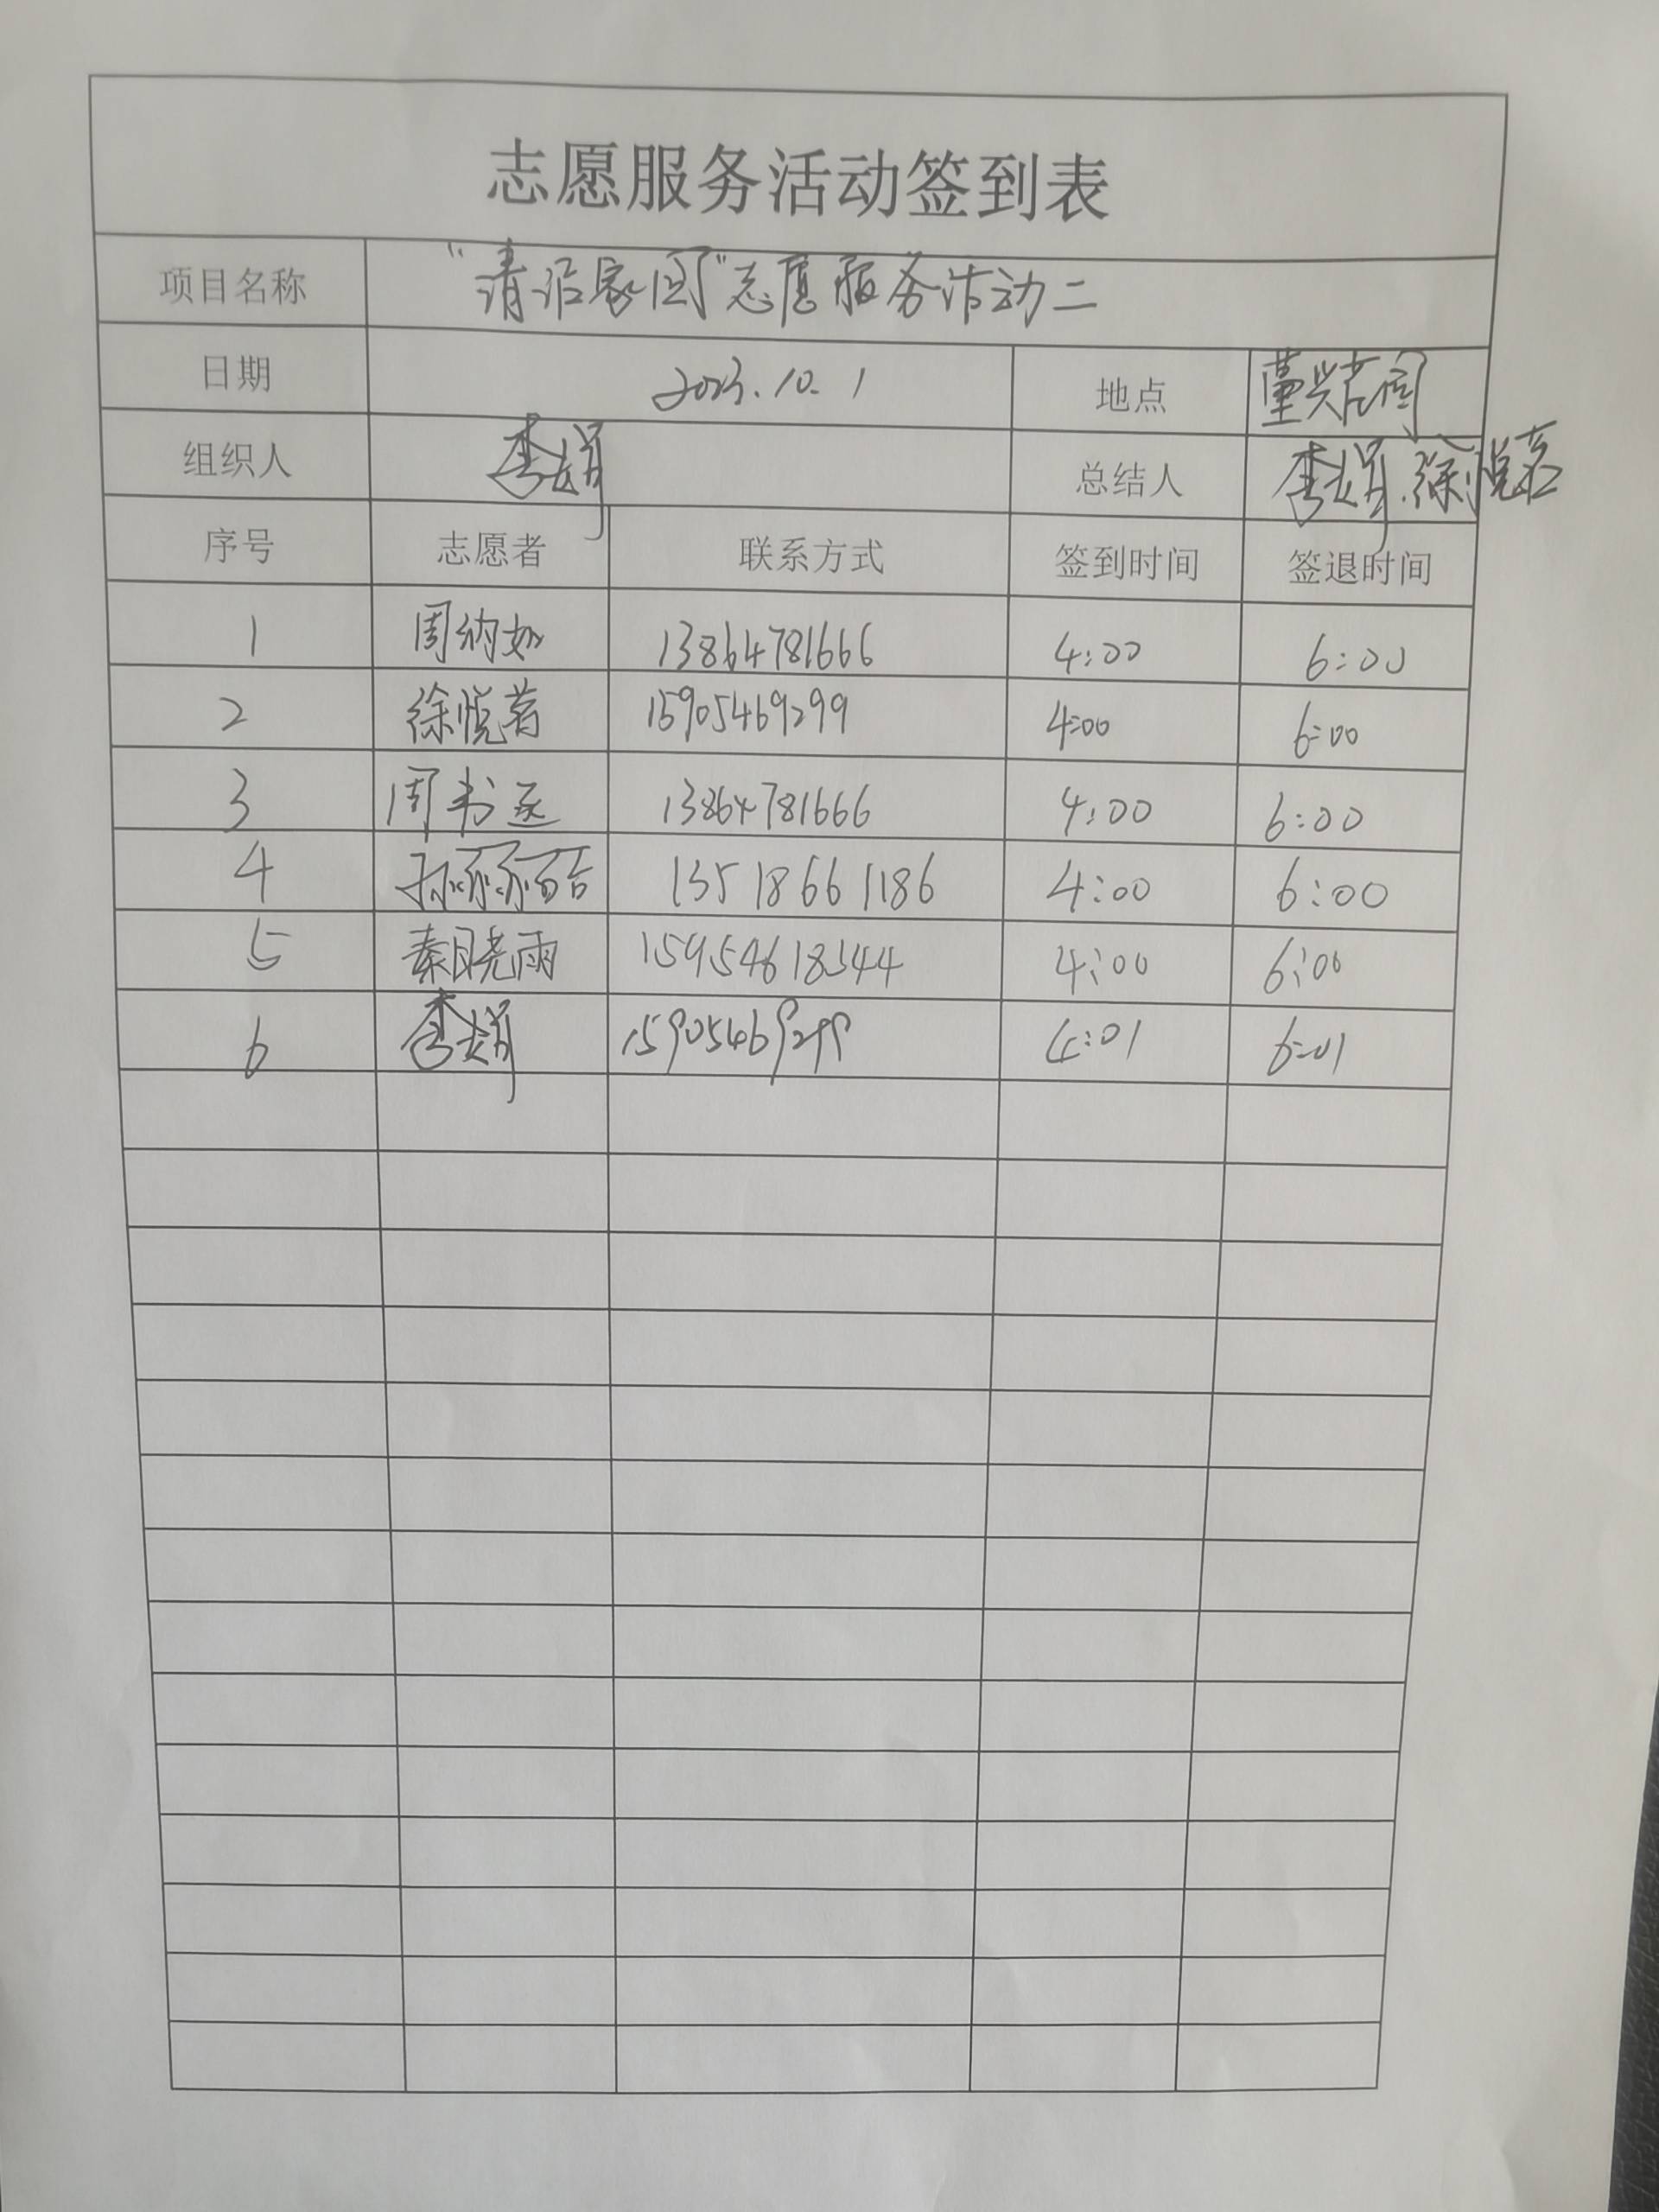 志愿服务活动签到表
项目名称 "清洁家园"志愿服务活动二
日期 2023.10.1 地点
组织人 李娟 总结人 李娟.徐悦茗
序号 志愿者 联系方式 签到时间 签退时间
1 周纳如 13864781666 4:00 6:00
2 徐悦茗 15905469299 4:00 6:00
3 周书丞 13864781666 4:00 6:00
4 13518661186 4:00 6:00
5 秦晓雨 15954618344 4:00 6:00
6 李娟 15905469299 4:01 6:01